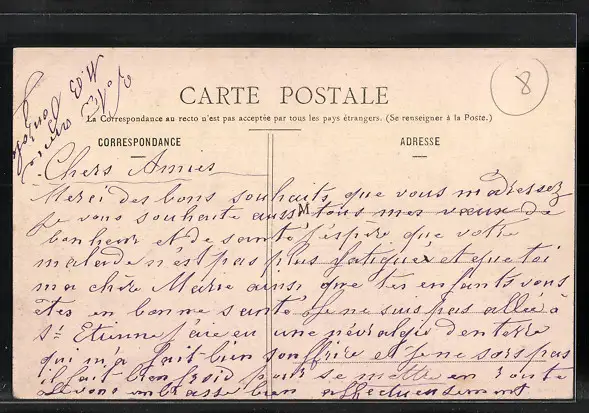 8
CARTE POSTALE
La Correspondance au recto n'est pas acceptée par tous les pays étrangers. (Se renseigner à la Poste.)
CORRESPONDANCE
ADRESSE
Chers Amies
Merci des bons souhaits que vous m'adressez
je vous souhaite aussi tous mes vœux de
M
bonheur et de santé j'espère que votre
malade n'est pas plus fatiguée et que toi
ma chère Marie ainsi que tes enfants vous
êtes en bonne santé Je ne suis pas allée à
St Etienne j'ai eu une névralgie dentaire
qui m'a fait bien souffrire et je ne sors pas
il fait bien froid pour se mettre en route
Je vous embrasse bien affectueusement